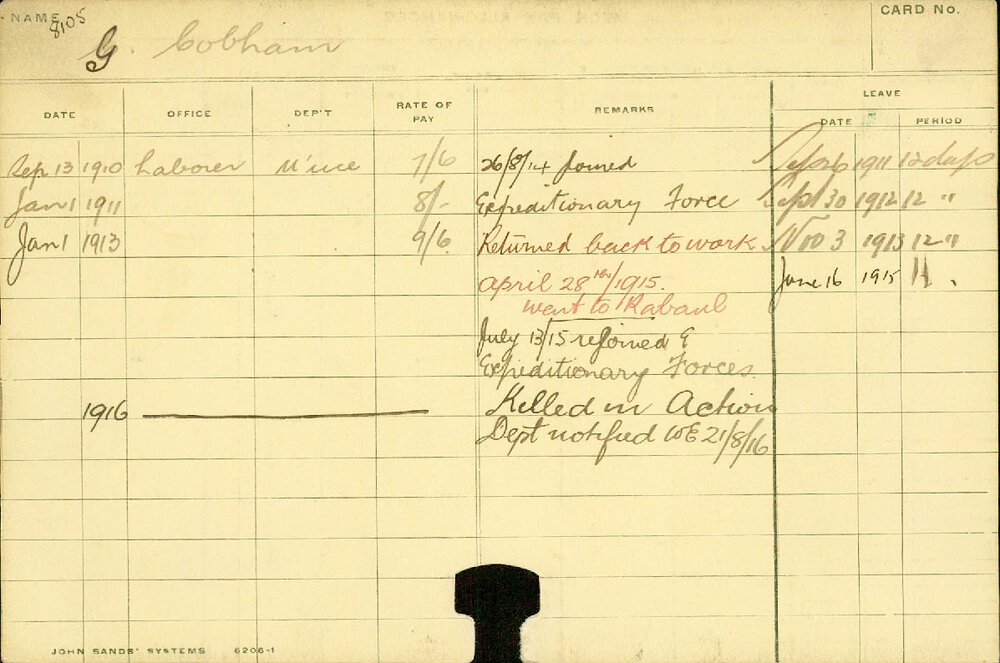 NAME 8105 CARD No.
G. Cobham
DATE OFFICE DEP'T RATE OF PAY REMARKS LEAVE
DATE PERIOD
Sep 13 1910 Laborer M'nce 7/6 26/8/14 Joined Sep 26 1911 12 days
Jan 1 1911 8/- Expeditionary Force Sept 30 1912 12 "
Jan 1 1913 9/6. Returned back to work Nov 3 1913 12 "
April 28th/1915. June 16 1915 11 "
went to Rabaul
July 13/15 rejoined E
Expeditionary Forces.
1916 Killed in Action
Dept notified WE 21/8/16
JOHN SANDS' SYSTEMS 6206-1